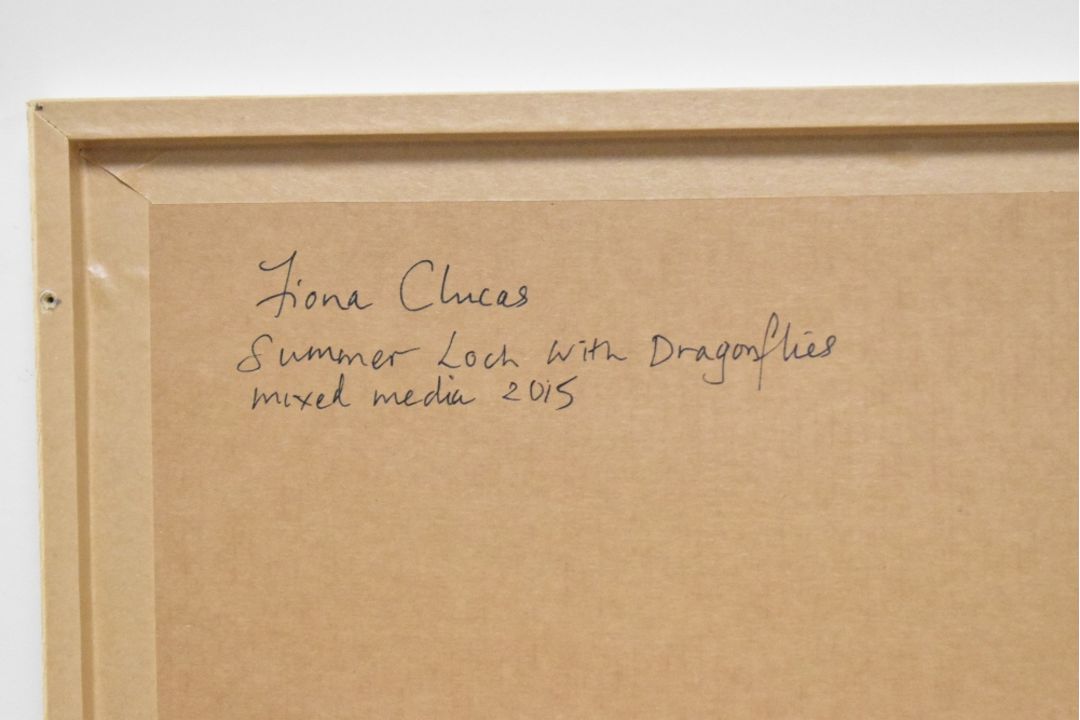 Fiona Clucas
Summer Loch with Dragonflies
mixed media 2015